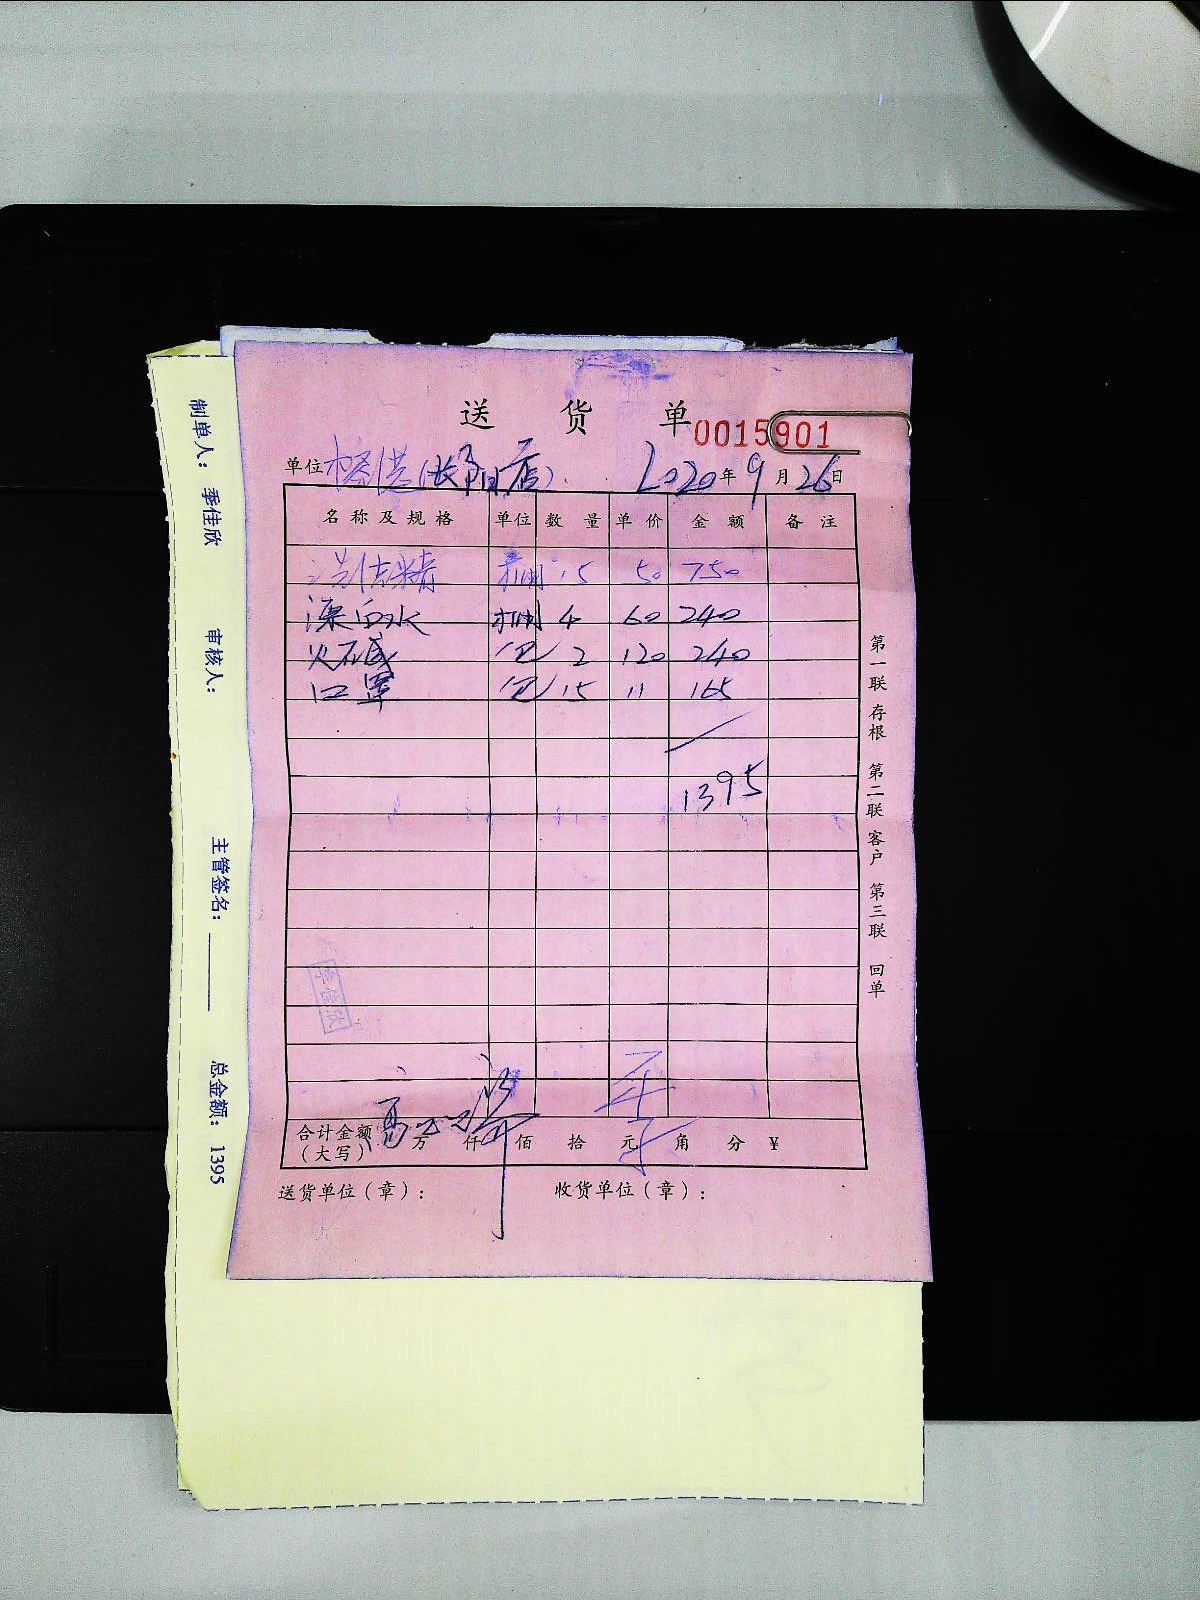 送货单
0015901
单位 榕港(长阳店) 2020年9月26日
名称及规格 单位 数量 单价 金额 备注
洗洁精 捆 15 50 750
漂白水 捆 4 60 240
火碱 包 2 120 240
口罩 包 15 11 165
1395
季佳欣
季
合计金额(大写) 万 仟 佰 拾 元 角 分 ¥
送货单位(章): 收货单位(章):
第一联 存根 第二联 客户 第三联 回单
制单人: 季佳欣 审核人: 主管签名: 总金额: 1395